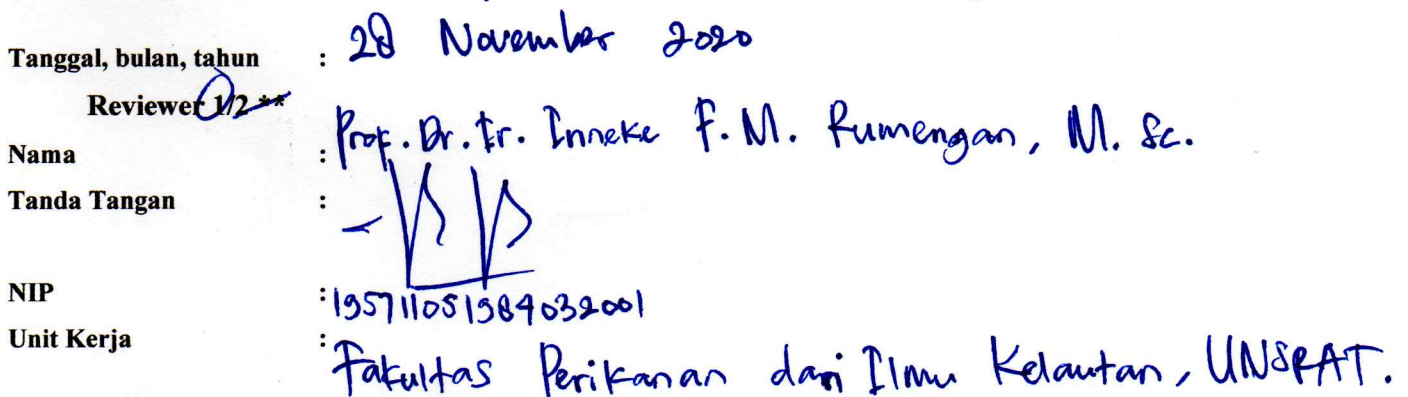 Tanggal, bulan, tahun : 28 November 2020
Reviewer 1/2 **
Nama : Prof. Dr. Ir. Inneke F. M. Rumengan, M. Sc.
Tanda Tangan :
NIP : 195711051984032001
Unit Kerja : Fakultas Perikanan dan Ilmu Kelautan, UNSRAT.